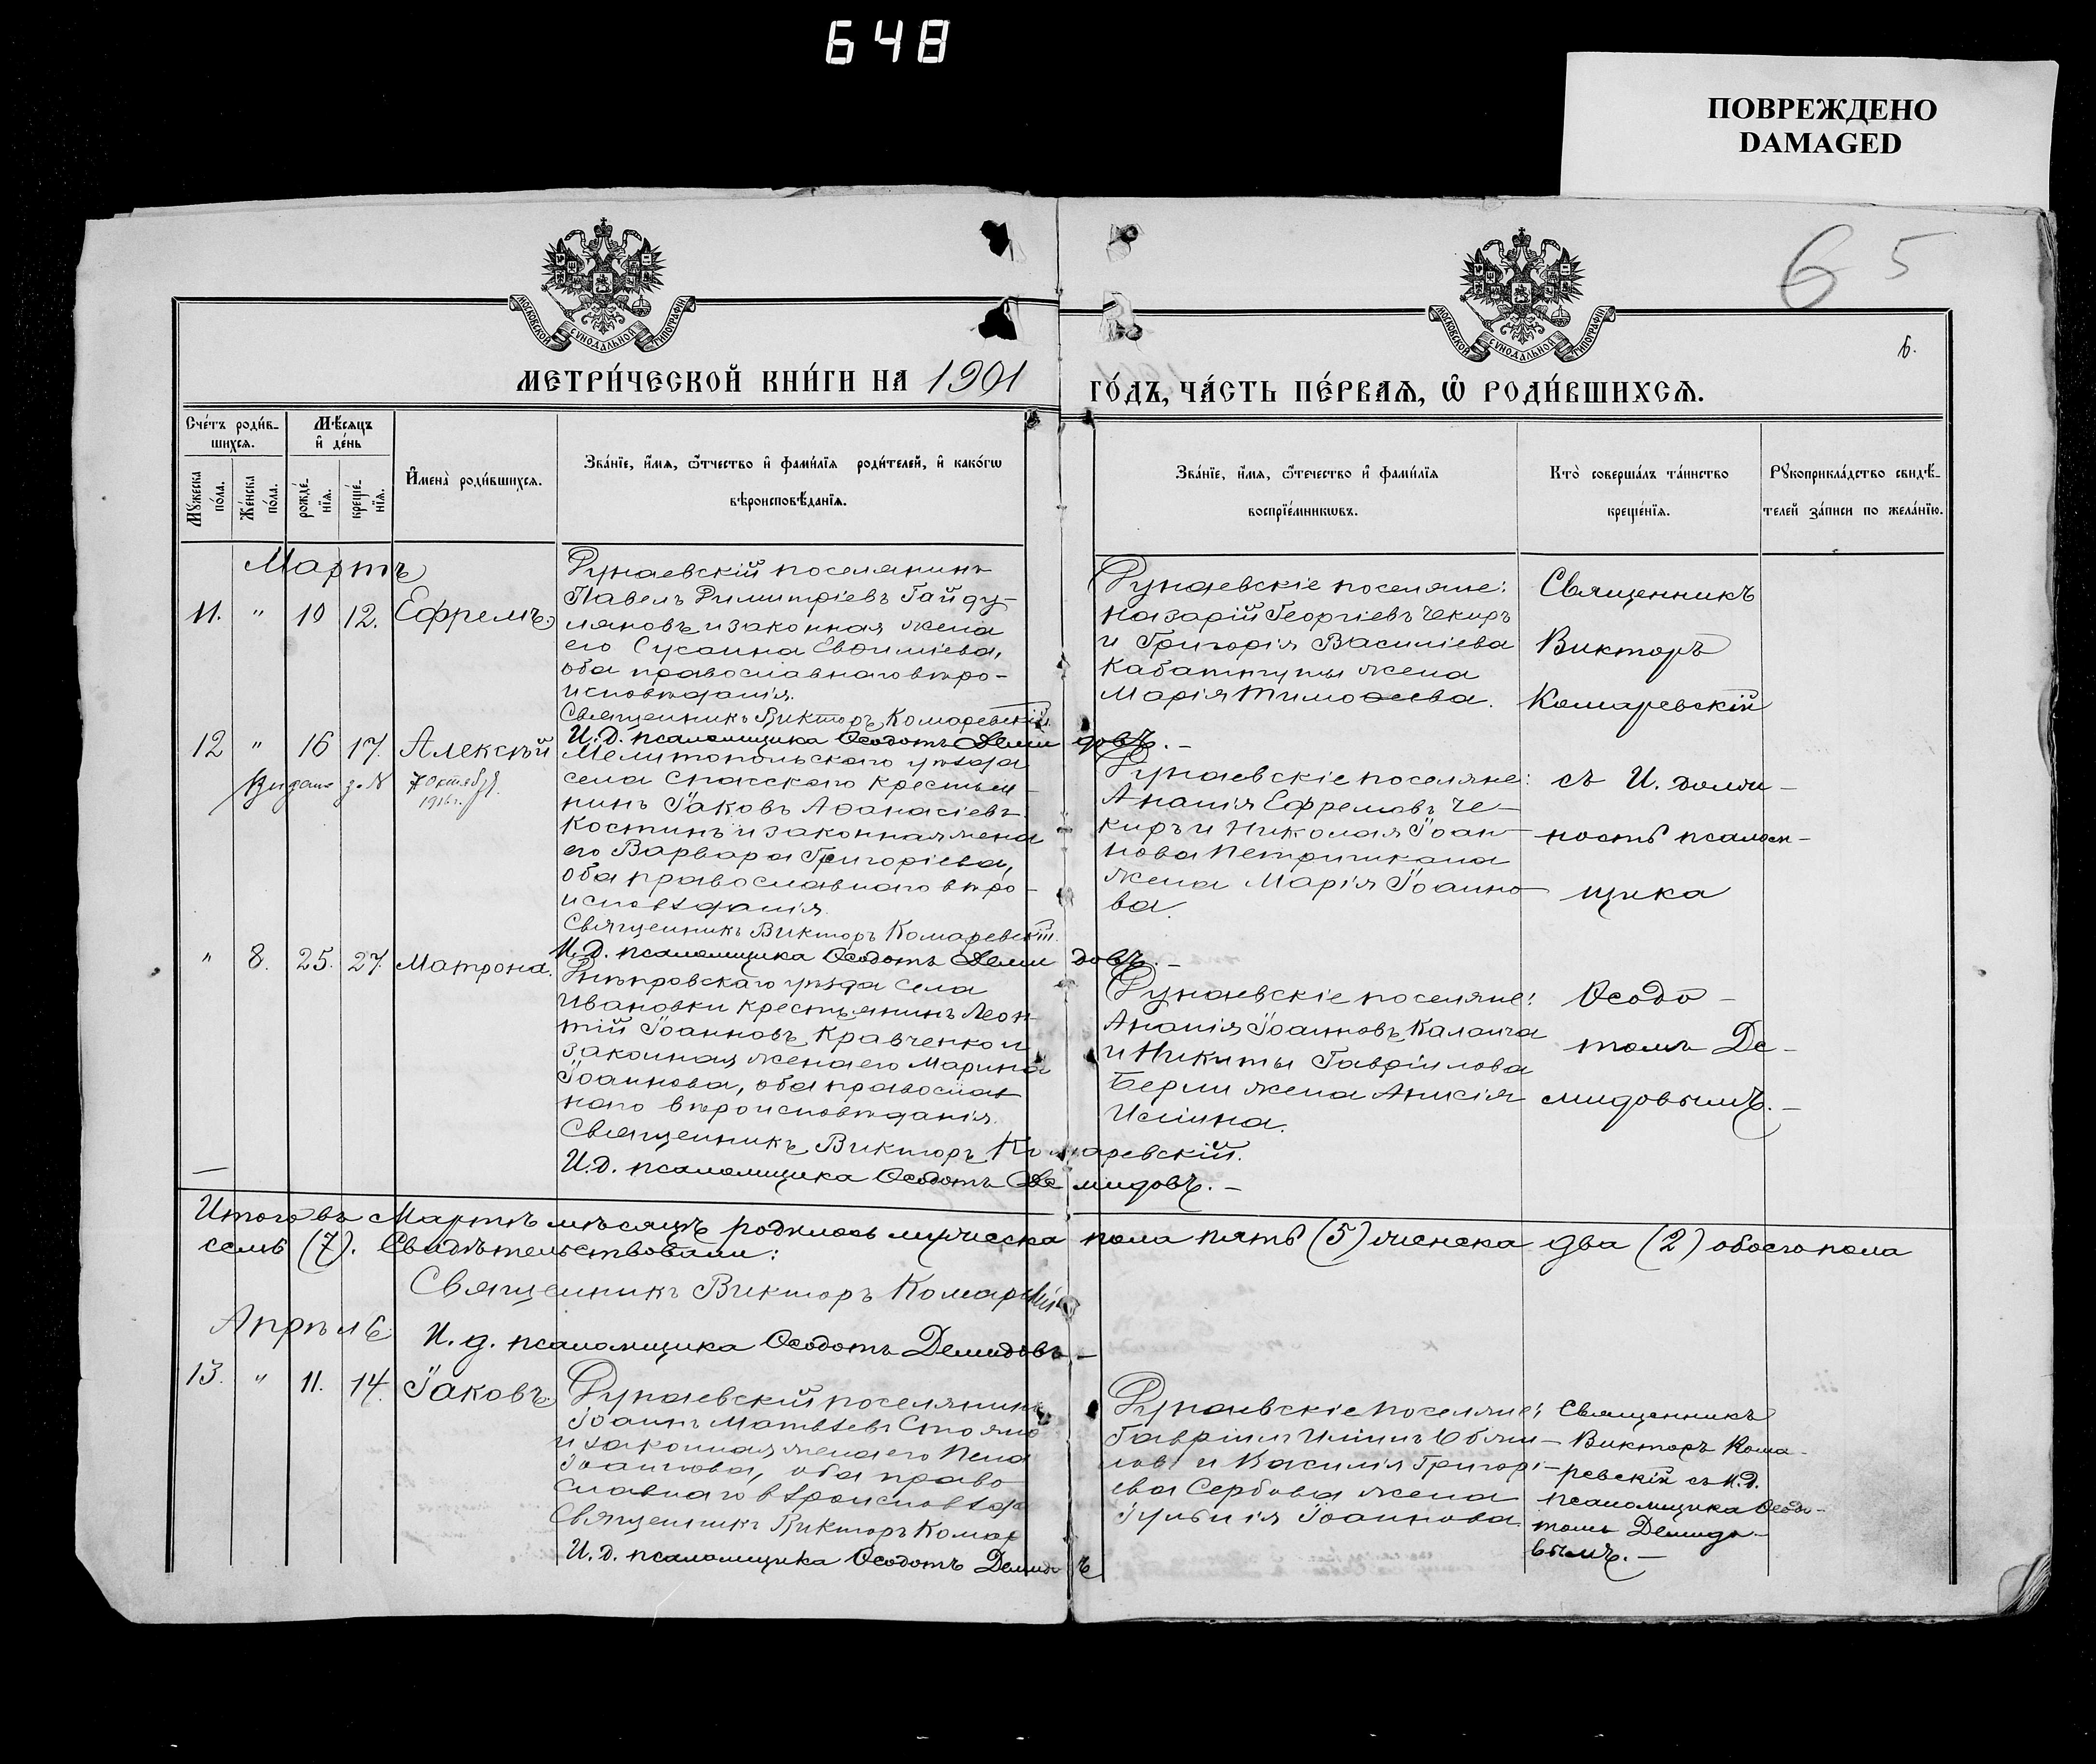 648
ПОВРЕЖДЕНО
DAMAGED
65
6.
МОСКОВСКОЙ СѴНОДАЛЬНОЙ ТИПОГРАФІИ
МОСКОВСКОЙ СѴНОДАЛЬНОЙ ТИПОГРАФІИ
МЕТРИ́ЧЕСКОЙ КНИ́ГИ НА 1901
ГО́ДЪ, ЧА́СТЬ ПЕ́РВАѦ, Ѡ҆ РОДИ́ВШИХСѦ.
Сче́тъ роди́в-
шихсѧ.
Мѣ́сѧцъ
и҆ де́нь
Мꙋ́жеска
по́ла.
Же́нска
по́ла.
рожде́-
нїѧ.
креще́-
нїѧ.
И҆мена̀ роди́вшихсѧ.
Зва́нїе, и҆́мѧ, ѻ҆́тчество и҆ фами́лїѧ роди́телей, и҆ како́гѡ
вѣроисповѣ́данїѧ.
Зва́нїе, и҆́мѧ, ѻ҆́течество и҆ фами́лїѧ
воспрїе́мникѡвъ.
Кто̀ соверша́лъ та́инство
креще́нїѧ.
Рꙋкоприкла́дство свидѣ́-
телей за́писи по жела́нїю.
Мартъ
11. " 10 12. Ефремъ
Дунаевскій поселянинъ
Павелъ Димитріевъ Гайду-
ляновъ и законная жена
его Сусанна Евѳиміева,
оба православнаго вѣро-
исповѣданія.
Священникъ Викторъ Комаревскій
И.д. псаломщика Ѳеодотъ Демидовъ. –
Дунаевскіе поселяне:
Назарій Георгіевъ Чекиръ
и Григорія Василіева
жена
Марія Тимоѳеева.
Священникъ
Викторъ
Комаревскій
12 " 16 17. Алексѣй
7 Октября
1916 г.
Мелитопольскаго уѣзда
села Спасскаго крестья-
нинъ Іаковъ Аѳанасіевъ
Костинъ и законная жена
его Варвара Григоріева,
оба православнаго вѣро-
исповѣданія.
Священникъ Викторъ Комаревскій.
И.д. псаломщика Ѳеодотъ Демидовъ. –
Дунаевскіе поселяне:
Ананія Ефремовъ Че-
киръ и Николая Іоан-
нова
жена Марія Іоанно-
ва.
съ И. долж-
ность псалом-
щика
" 8. 25. 27. Матрона.
Днѣпровскаго уѣзда села
Ивановки крестьянинъ Леон-
тій Іоанновъ Кравченко и
законная жена его Марина
Іоаннова, оба православ-
наго вѣроисповѣданія.
Священникъ Викторъ Комаревскій.
И.д. псаломщика Ѳеодотъ Демидовъ. –
Дунаевскіе поселяне:
Ананія Іоанновъ Калайча
и Никиты Гавріилова
Берли жена Анисія
Иліина.
Ѳеодо-
томъ Де-
мидовымъ. –
Итого въ Мартѣ мѣсяцѣ родилось мужеска пола пять (5) женска два (2) обоего пола
семь (7). Свидѣтельствовали:
Священникъ Викторъ Комаревскій
И. д. псаломщика Ѳеодотъ Демидовъ –
Апрѣль
13. " 11. 14. Іаковъ
Дунаевскій поселянинъ
Іоаннъ Матвѣевъ Стояно
и законная жена его
Іоаннова, оба право-
славнаго вѣроисповѣд
Священникъ Викторъ Комар
И.д. псаломщика Ѳеодотъ Демидовъ
Дунаевскіе поселяне:
Гавріилъ Иліинъ
и Василія Григорі-
ева Сербова жена
Іоаннова.
Священникъ
Викторъ Кома-
ревскій съ И.д.
псаломщика Ѳеодо-
томъ Демидо-
вымъ. –